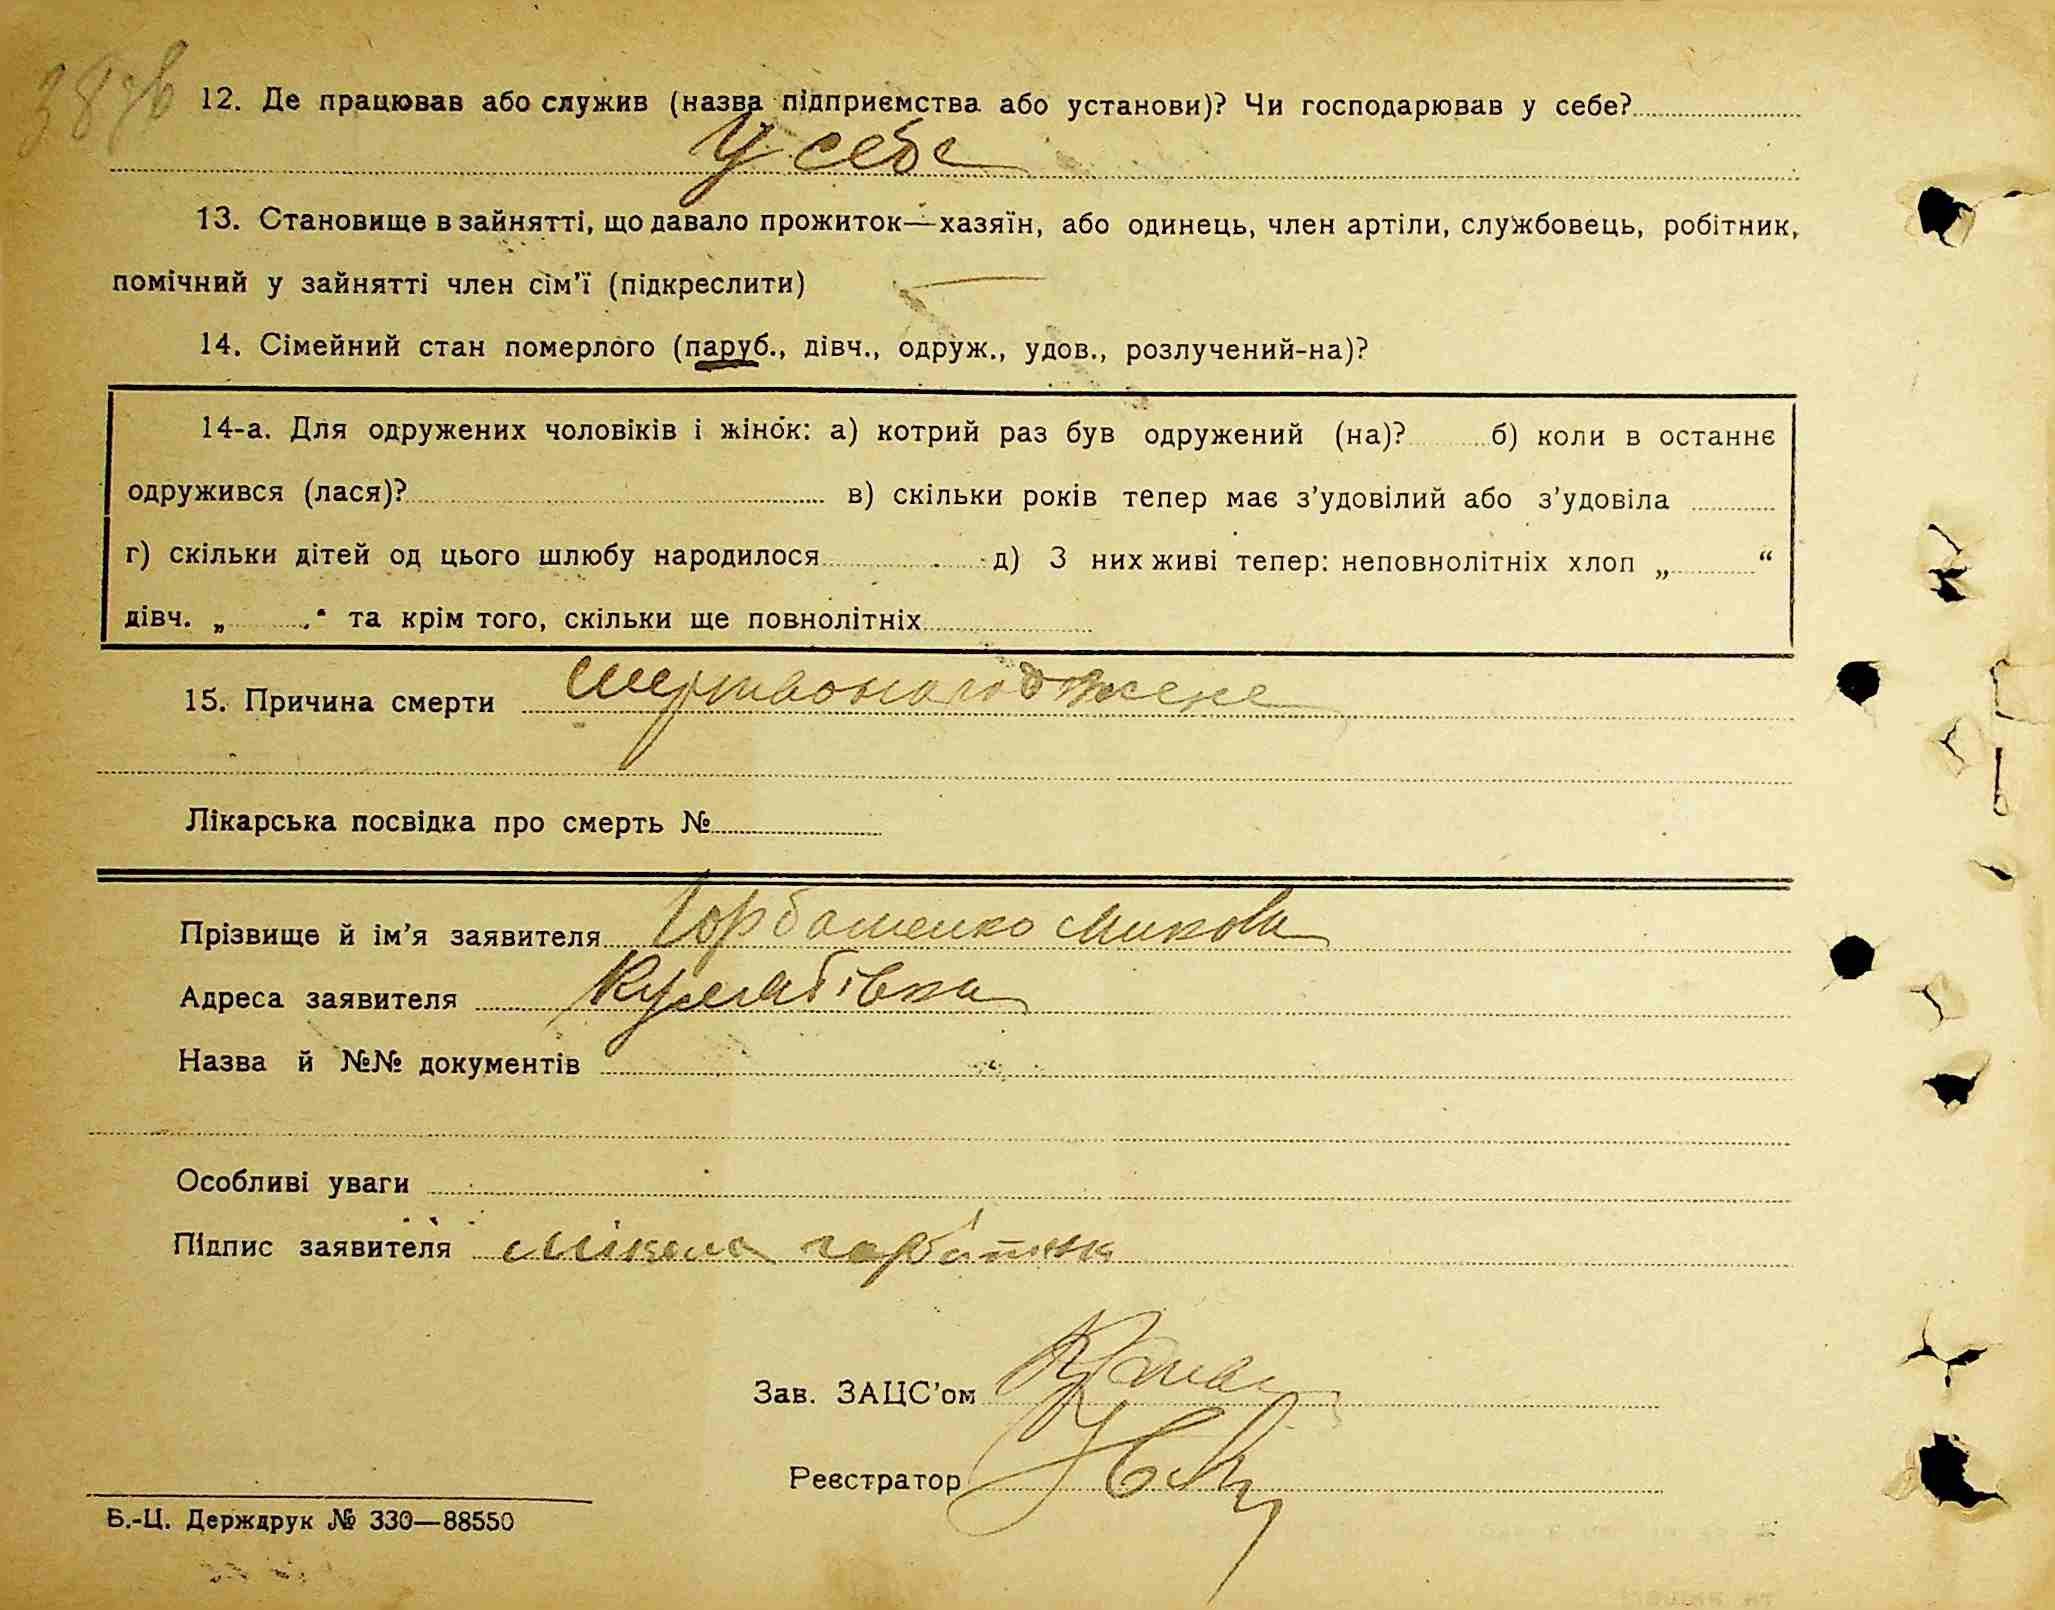 12. Де працював або служив (назва підприємства або установи)? Чи господарював у себе?
У себе
13. Становище в зайнятті, що давало прожиток—хазяїн, або одинець, член артіли, службовець, робітник,
помічний у зайнятті член сім'ї (підкреслити) —
14. Сімейний стан померлого (паруб., дівч., одруж., удов., розлучений-на)?
14-а. Для одружених чоловіків і жінок: а) котрий раз був одружений (на)? б) коли в останнє
одружився (лася)? в) скільки років тепер має з'удовілий або з'удовіла
г) скільки дітей од цього шлюбу народилося д) З них живі тепер: неповнолітніх хлоп „ “
дівч. „ “ та крім того, скільки ще повнолітніх
15. Причина смерти мертвонароджене
Лікарська посвідка про смерть №
Прізвище й ім'я заявителя Горбатенко Микола
Адреса заявителя
Назва й №№ документів
Особливі уваги
Підпис заявителя Мікола
Зав. ЗАЦС'ом
Реєстратор
Б.-Ц. Держдрук № 330—88550